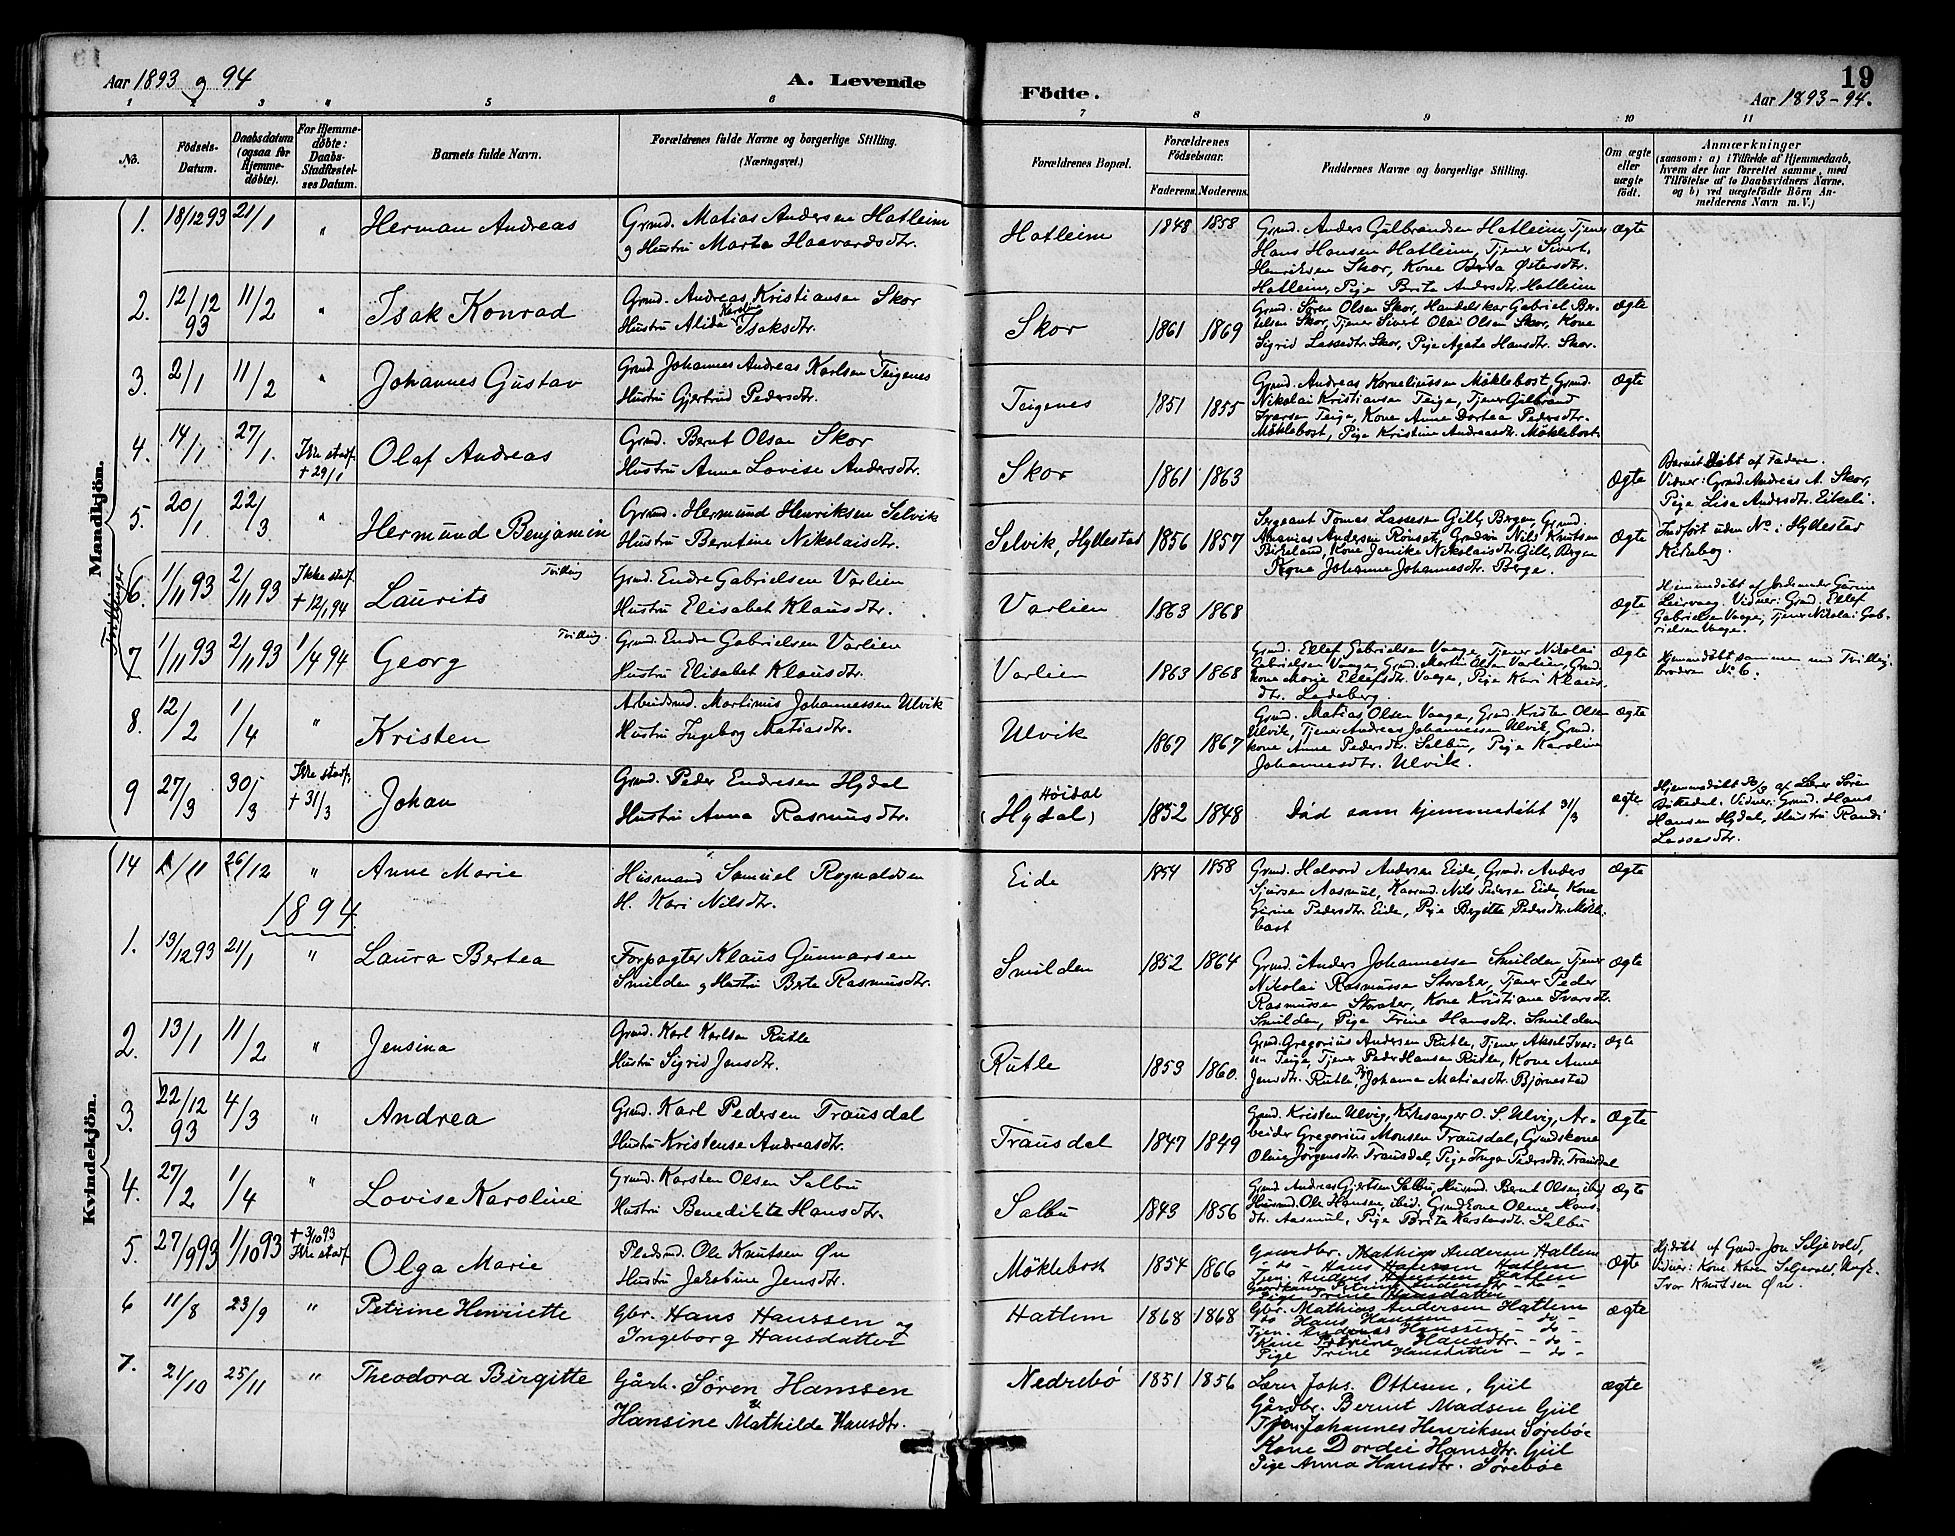 Aar 1893 og 94
A. Levende
Födte.
19
Aar 1893-94.
1 2 3 4 5 6 7 8 9 10 11
No.
Födsels-
Datum.
Daabsdatum
(ogsaa for
Hjemme-
döbte).
For Hjemme-
döbte:
Daabs-
Stadfæstel-
ses Datum.
Barnets fulde Navn.
Forældrenes fulde Navne og borgerlige Stilling.
(Næringsvei.)
Forældrenes Bopæl.
Forældrenes
Födselsaar.
Faderens. Moderens.
Faddernes Navne og borgerlige Stilling.
Om ægte
eller
uægte
födt.
Anmærkninger
(saasom: a) i Tilfælde af Hjemmedaab,
hvem der har forrettet samme, med
Tilföielse af to Daabsvidners Navne,
og b) ved uægtefödte Börn An-
melderens Navn m. V.)
Mandkjön.
1. 18/12 93 21/1 " Herman Andreas
Grmd. Matias Andersen Hatleim
og Hustru Marta Haavardsdtr.
Hatleim 1848 1858
Grmd. Anders Gulbrandsen Hatleim, Tjener
Hans Hansen Hatleim, Tjener Sivert
Henriksen Skor, Kone Brita Østensdtr.
Hatleim, Pige Brita Andersdtr. Hatleim
Ægte
2. 12/12 93 11/2 " Isak Konrad
Grmd. Andreas Kristiansen Skor
Hustru Alida Isaksdtr.
Skor 1861 1869
Grmd. Søren Olsen Skor, Handelskar Gabriel Ber-
telsen Skor, Tjener Sivert Olai Olsen Skor, Kone
Sigrid Lassedtr. Skor, Pige Agate Hansdtr. Skor.
Ægte
3. 2/1 11/2 " Johannes Gustav
Grmd Johannes Andreas Karlsen Teigenes
Hustru Gjertrud Pedersdtr.
Teigenes 1851 1855
Grmd. Andreas Korneliussen Möklebost, Grmd.
Nikolai Kristiansen Teige, Tjener Gilbrand
Ivarsen Teige, Kone Anne Dortea Pedersdtr.
Möklebost, Pige Kristine Andreasdtr. Möklebost.
Ægte
4. 14/1 27/1. Ikke stadf. + 29/1 Olaf Andreas
Grmd. Bernt Olsen Skor
Hustru Anne Lovise Andersdtr.
Skor 1861 1863
Ægte
Barnet döbt af Faderen.
Vidner: Grmd. Andreas A. Skor,
Pige Lisa Andersdtr. Eikeli.
5. 20/1 22/3. " Hermund Benjamin
Grmd. Hermund Henriksen Selvik
Hustru Berntine Nikolaisdtr.
Selvik, Hyllestad 1856 1857
Sergeant Tomas Lassesen Gill, Bergen, Grmd.
Ananias Andersen Ronset, Grmdsøn Nils Knutsen
Birkeland, Kone Janike Nikolaisdtr. Gill, Bergen
Kone Johanne Johannesdtr. Berge.
Ægte
Indført uden No. i Hyllestad
Kirkebog.
Tvillinger
6. 1/11 93 2/11 93 Ikke stadf. + 12/1 94 Laurits Tvilling
Grmd. Endre Gabrielsen Varlien
Hustru Elisabet Klausdtr.
Varlien 1863 1868
Ægte
Hjemmedöbt af Jordemoder Gurine
Leirvaag. Vidner: Grmd. Ellef
Gabrielsen Vaage, Tjener Nikolai Gab-
rielsen Vaage.
7 1/11 93 2/11 93 1/4 94 Georg Tvilling.
Grmd. Endre Gabrielsen Varlien
Hustru Elisabet Klausdtr.
Varlien 1863 1868
Grmd. Ellef Gabrielsen Vaage, Tjener Nikolai
Gabrielsen Vaage, Grmd. Martin Olsen Varlien, Grmd.
kone Marie Ellefsdtr. Vaage, Pige Kari Klaus-
dtr. Ladeberg.
Ægte
Hjemmedöbt sammen med Tvilling-
broderen No 6.
8. 12/2 1/4 " Kristen
Arbeidsmd. Martinus Johannessen Ulvik
Hustru Ingeborg Matiasdtr.
Ulvik 1867 1867
Grmd. Matias Olsen Vaage, Grmd. Kristen Olsen
Ulvik, Tjener Andreas Johannessen Ulvik, Grmd.
kone Anne Pedersdtr. Salbu, Pige Karoline
Johannesdtr. Ulvik.
Ægte
9 27/3 30/3 Ikke stadf. + 31/3 Johan
Grmd. Peder Endresen Hydal
Hustru Anna Rasmusdtr.
Høidal
(Hydal) 1852 1848
Död som hjemmedöbt 31/3
Ægte
Hjemmedöbt 30/3 af Lærer Søren
Vidner: Grmd. Hans
Hansen Hydal, Hustru Randi
Lassesdtr.
Kvindekjön.
14 /11 26/12 " Anne Marie
Husmand Samuel Rognaldsen
H. Kari Nilsdtr.
Eide 1854 1858
Grmd. Halvord Andersen Eide, Grmd. Anders
Sjursen Aasmul, Kaarmd. Nils Pedersen Eide, Kone
Gurine Pedersdtr. Eide, Pige Bergitte Pedersdtr. Mökle-
bost
Ægte
1894
1. 13/12 93 21/1 " Laura Bertea
Forpagter Klaus Gunnarsen
Smilden og Hustru Berte Rasmusdtr.
Smilden 1852 1864
Grmd. Anders Johannessen Smilden, Tjener
Nikolai Rasmussen Storaker, Tjener Peder
Rasmussen Storaker, Kone Kristiane Ivarsdtr.
Smilden, Pige Trine Hansdtr. Smilden
Ægte
2. 13/1 11/2 " Jensina
Grmd. Karl Karlsen Rutle
Hustru Sigrid Jensdtr.
Rutle 1853 1860.
Grmd. Gregorius Andersen Rutle, Tjener Aksel Ivar-
sen Teige, Tjener Peder Hansen Rutle, Kone Anne
Jensdtr. Rutle, Pige Johanna Matiasdtr. Bjørnestad
Ægte
3. 22/12 93 4/3 " Andrea
Grmd. Karl Pedersen Trausdal
Hustru Kristense Andreasdtr.
Trausdal 1847 1849
Grmd. Kristen Ulvig, Kirkesanger O. S. Ulvig, Ar-
beider Gregorius Monsen Trausdal, Grmdskone
Oline Jørgensdtr. Trausdal, Pige Inga Pedersdtr. Trausdal
Ægte
4. 27/2 1/4 " Lovise Karoline
Grmd. Karsten Olsen Salbu
Hustru Benedikte Hansdtr.
Salbu 1843 1856
Grmd Andreas Gjertsen Salbu, Husmd. Bernt Olsen, ibid
Husmd. Ole Hansen, ibid. Grmd Kone Olene Hans-
dtr. Aasmul, Pige Brite Karstensdtr. Salbu
Ægte
5. 27/9 93 1/10 93 + 3/10 93 Ikke stadf. Olga Marie
Pladsmd. Ole Knutsen Øn
Hustru Jakobine Jensdtr.
Möklebost 1854 1866
Gaardbr. Mathias Andersen Hatlem
- do - Hans Hanssen Hatlem
Tjen. Andreas Hanssen Hatlem
Pige Trine Hansdatter
Ægte
Hj.döbt af Grmd. Jon Seljevold,
Vidner: Kone Seljevold, Ungk.
Ivar Knutsen Øn.
6 11/8 23/9 " Petrine Henriette
Gbr. Hans Hanssen og
Ingeborg Hansdatter
Hatlem 1868 1868
Gbr. Mathias Andersen Hatlem
do Hans Hanssen - do -
Tjen. Andreas Hanssen - do -
Kone Petrine Hansdtr. - do -
Pige Trine Hansdatter - do -
Ægte
7. 21/10 25/11 " Theodora Birgitte
Gårb. Søren Hanssen
Hansine Mathilde Hansdtr.
Nedrebö 1851 1856
Lærer Johs. Ottesen, Guil
Gårdbr. Bernt Madsen Guil
Tjen. Johannes Henriksen Sørebøe
Kone Dordei Hansdtr. Guil
Pige Anna Hansdtr. Sørebøe
ægte